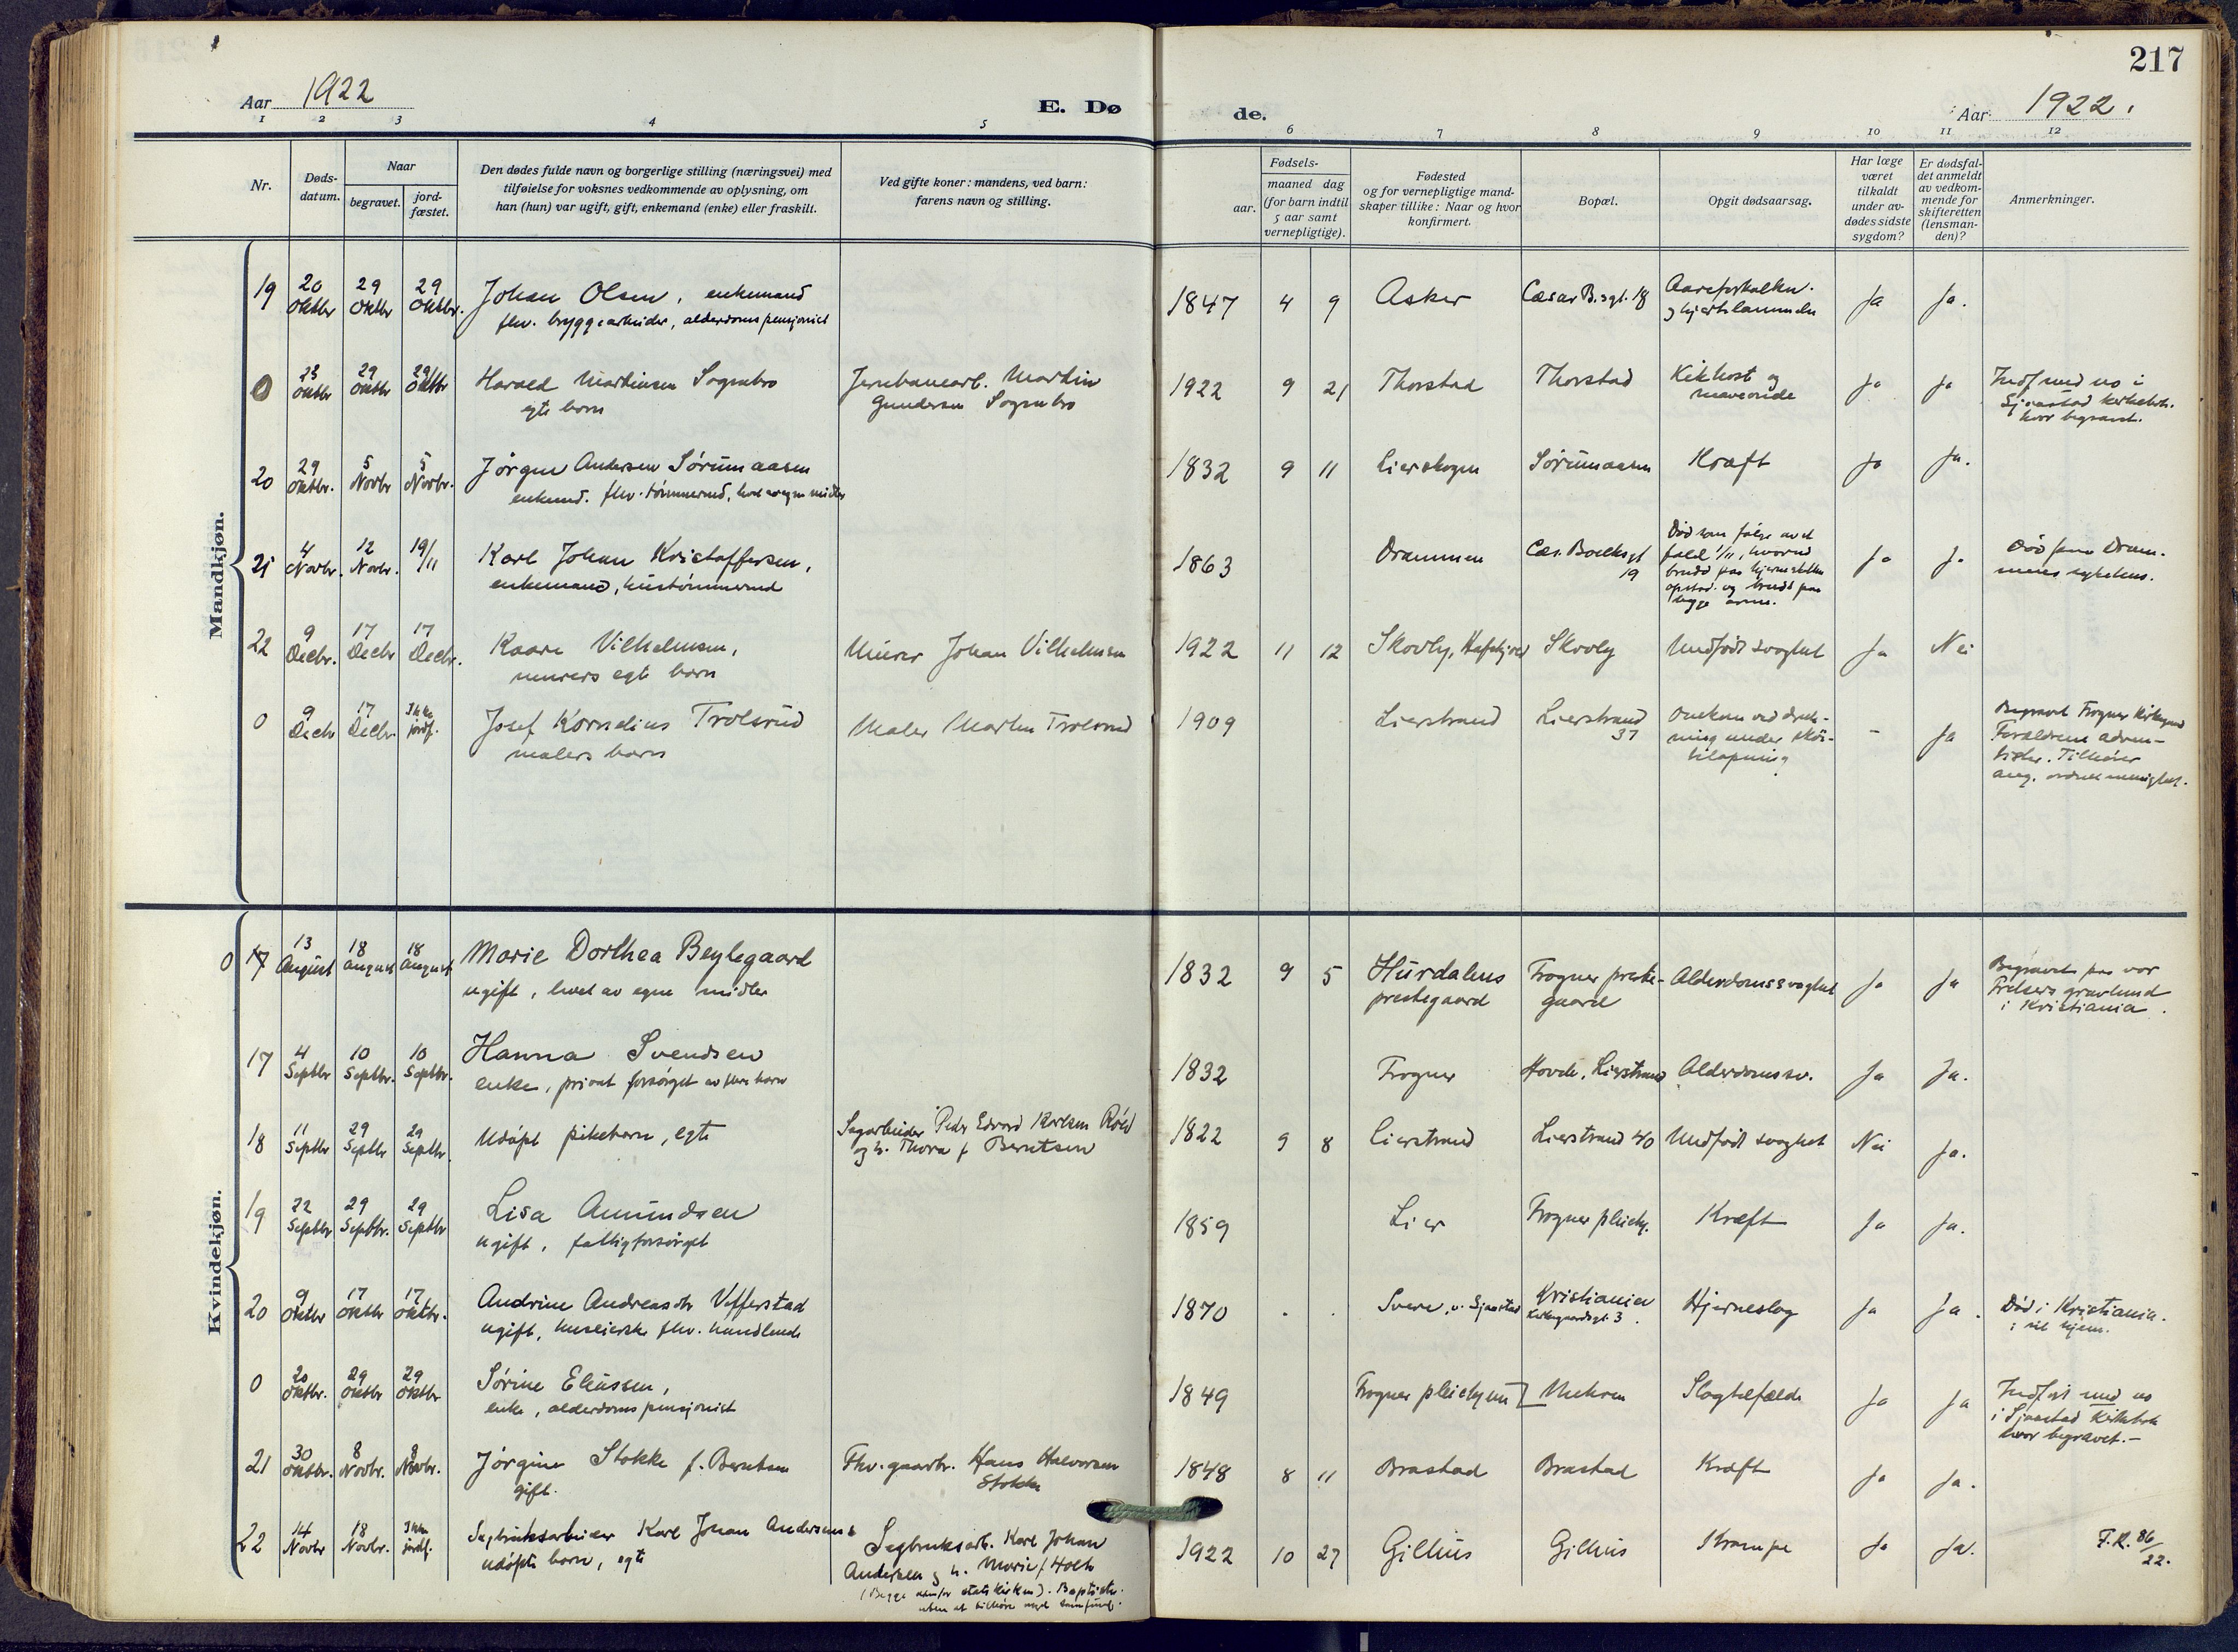 217
Aar 1922
E. Dø
de.
Aar 1922.
1 2 3 4 5 6 7 8 9 10 11 12
Nr.
Døds-
datum.
Naar
begravet.
jord-
fæstet.
Den dødes fulde navn og borgerlige stilling (næringsvei) med
tilføielse for voksnes vedkommende av oplysning, om
han (hun) var ugift, gift, enkemand (enke) eller fraskilt.
Ved gifte koner: mandens, ved barn:
farens navn og stilling.
Fødsels-
aar.
maaned dag
(for barn indtil
5 aar samt
vernepligtige).
Fødested
og for vernepligtige mand-
skaper tillike: Naar og hvor
konfirmert.
Bopæl.
Opgit dødsaarsag.
Har læge
været
tilkaldt
under av-
dødes sidste
sygdom?
Er dødsfal-
det anmeldt
av vedkom-
mende for
skifteretten
(lensman-
den)?
Anmerkninger.
Mandkjøn.
19 20 Oktbr 29 Oktbr 29 Oktbr. Johan Olsen, enkemand
flv. bryggearbeider, alderdomspensjonist
1847 4 9 Asker Cæsar B.sgt. 18 Aareforkalkn.
og hjertelammelse Ja Ja.
0 23 Oktbr 29 Oktbr 29 Oktbr Harald Martinsen Sognebro
egte barn
Jernbanearb. Martin
Gundersen Sognebro
1922 9 21 Thorstad Thorstad Kikhost og
maveonde Ja Ja Indf. med no i
Sjaastad kirkebok.
hvor begravet.
20 29 Oktbr. 5 Novbr 5 Novbr. Jørgen Andersen Sørumaasen
enkemd. flv. tømmermd, levet av egne midler
1832 9 11 Lierskogen Sørumaasen Kræft Ja Ja.
21 4 Novbr. 12 Novbr. 19/11 Karl Johan Kristoffersen,
enkemand, hustømmermd
1863 Drammen Cæs. Boecksgt
19
Død som følge av et
fald 1/11, hvorved
brudd paa hjerneskallen
opstod og brudd paa
begge arme.
Ja Ja Død paa Dram-
mens sykehus.
22 9 Decbr. 17 Decbr 17 Decbr. Kaare Vilhelmsen,
murers egte barn
Murer Johan Vilhelmsen
1922 11 12 Skovly, Skovly Medfødt svaghet Ja Nei
0 9 Decbr 17 Decbr. Ikke jordf. Josef Kornelius Trolsrud
malers barn
Maler Martin Trolsrud
1909 Lierstrand Lierstrand
37
Omkom ved druk-
ning under skøi-
teløpning
- Ja Begravet Frogner Kirkegaard
Forældrene adven-
tister. Tilhører
ang.
Kvindekjøn.
0 17 13 August 18 August 18 August Marie Dorthea Beylegaard
ugift, levet av egne midler
1832 9 5 Hurdalens
prestegaard
Frogner preste-
gaard
Alderdomssvaghet Ja Ja Begravet paa vor
Frelsers gravlund
i Kristiania.
17 4 Septbr 10 Septbr. 10 Septbr. Hanna Svendsen
enke, privat forsørget av flere barn
1832 Frogner Hovde, Lierstrand Alderdomssv. Ja Ja.
18 11 Septbr 29 Septbr 29 Septbr. Udøpt pikebarn, egte
Sagarbeider Peder Edvard Karlsen Røed
og h. Thora f Berntsen
1822 9 8 Lierstrand Lierstrand 40 Medfødt svaghet Nei Ja.
19 22 Septbr 29 Septbr. 29 Septbr Lisa Amundsen
ugift, fattigforsørget
1859 Lier Frogner pleiehj. Kræft Ja Ja.
20 9 Oktbr 17 Oktbr 17 Oktbr. Andrine Andreasdtr Vefferstad
ugift, huseierske flv. handlende
1870 Svere, v. Sjaastad Kristiania
Kirkegaardsgt. 3.
Hjerneslag Ja Ja. Død i Kristiania.
i sit hjem.
0 20 Oktbr. 29 Oktbr 29 Oktbr Sørine Eliassen,
enke, alderdomspensjonist
1849 Frogner pleiehjem] Meheia Slagtilfælde Ja Ja Indført med no
i Sjaastad kirkebok
hvor begravet.-
21 30 Oktbr. 8 Novbr. 8 Novbr. Jørgine Stokke f. Berntsen
gift.
Flv. gaardbr. Hans Halvorsen
Stokke
1848 8 11 Brastad Brastad Kræft Ja Ja.
22 14 Novbr 18 Novbr. Ikke jordf. Sagbruksarbeider Karl Johan Andersens
udøpte barn, egte
Sagbruksarb. Karl Johan
Andersen og h. Marie f Holth
(Begge utenfor statskirken). Baptister.
uten at tilhøre noget samfund.
1922 10 27 Gilhus Gilhus Krampe Ja Ja. F.R. 86/22.